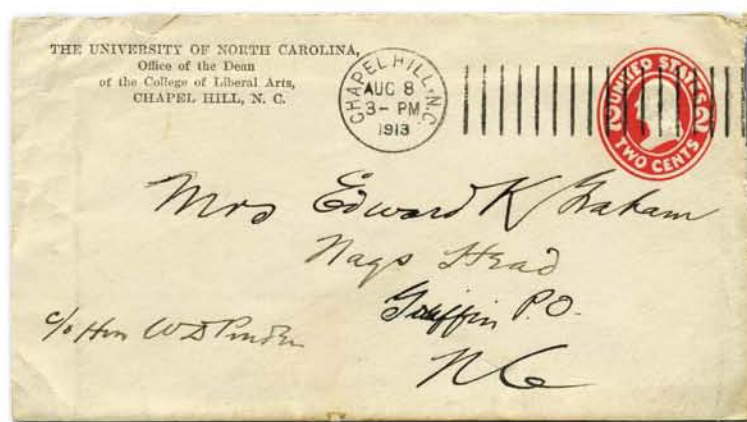 THE UNIVERSITY OF NORTH CAROLINA,
Office of the Dean
of the College of Liberal Arts,
CHAPEL HILL, N. C.
CHAPEL HILL, N.C.
AUG 8
3- PM
1913
UNITED STATES
2 2
TWO CENTS
Mrs Edward K Graham
Nags Head
Griffin P.O.
c/o Hon W D Pruden
N C